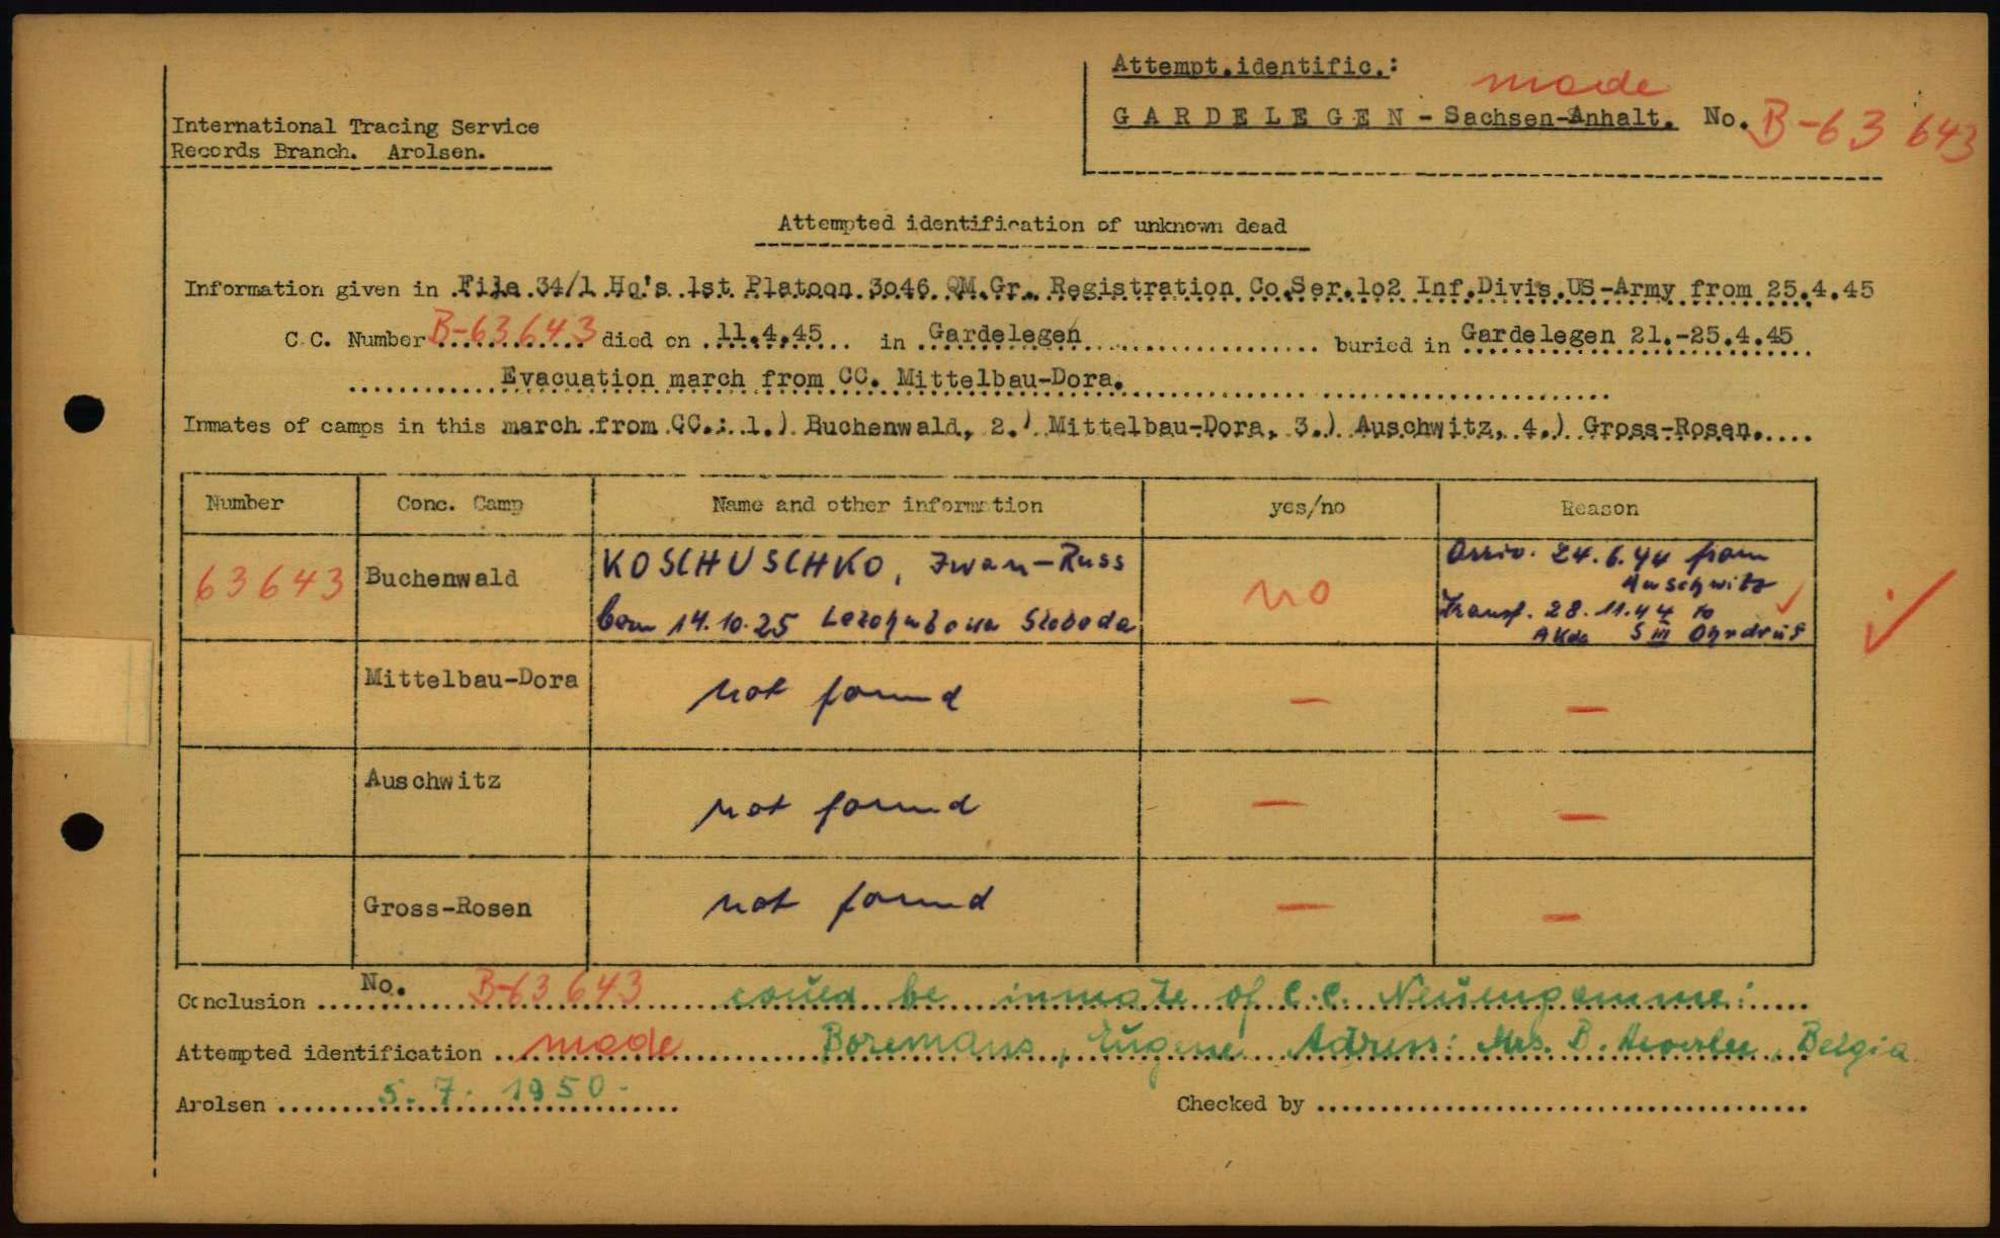 Attempt.identific.:
made
GARDELEGEN - Sachsen-Anhalt. No. B-63 643
International Tracing Service
Records Branch. Arolsen.
Attempted identification of unknown dead
Information given in File 34/1 Hq's 1st Platoon 3o46 QM.Gr. Registration Co.Ser.1o2 Inf.Divis.US-Army from 25.4.45
C.C. Number B-63643 died on 11.4.45 in Gardelegen buried in Gardelegen 21.-25.4.45
Evacuation march from CC. Mittelbau-Dora.
Inmates of camps in this march from CC.: 1.) Buchenwald, 2.) Mittelbau-Dora, 3.) Auschwitz, 4.) Gross-Rosen.
Number Conc. Camp Name and other information yes/no Reason
63643 Buchenwald KOSCHUSCHKO, Iwan-Russ no Arriv. 24.6.44 from
Auschwitz
born 14.10.25 Sloboda Transf. 28.11.44 to
AKdo S III Ohrdruf
Mittelbau-Dora not found — —
Auschwitz not found — —
Gross-Rosen not found — —
Conclusion No. B-63 643 could be inmate of C.C. Neuengamme:
Attempted identification made Boremans, Eugene Adress: Mrs. B. Heverlee, Belgia
Arolsen 5.7.1950. Checked by